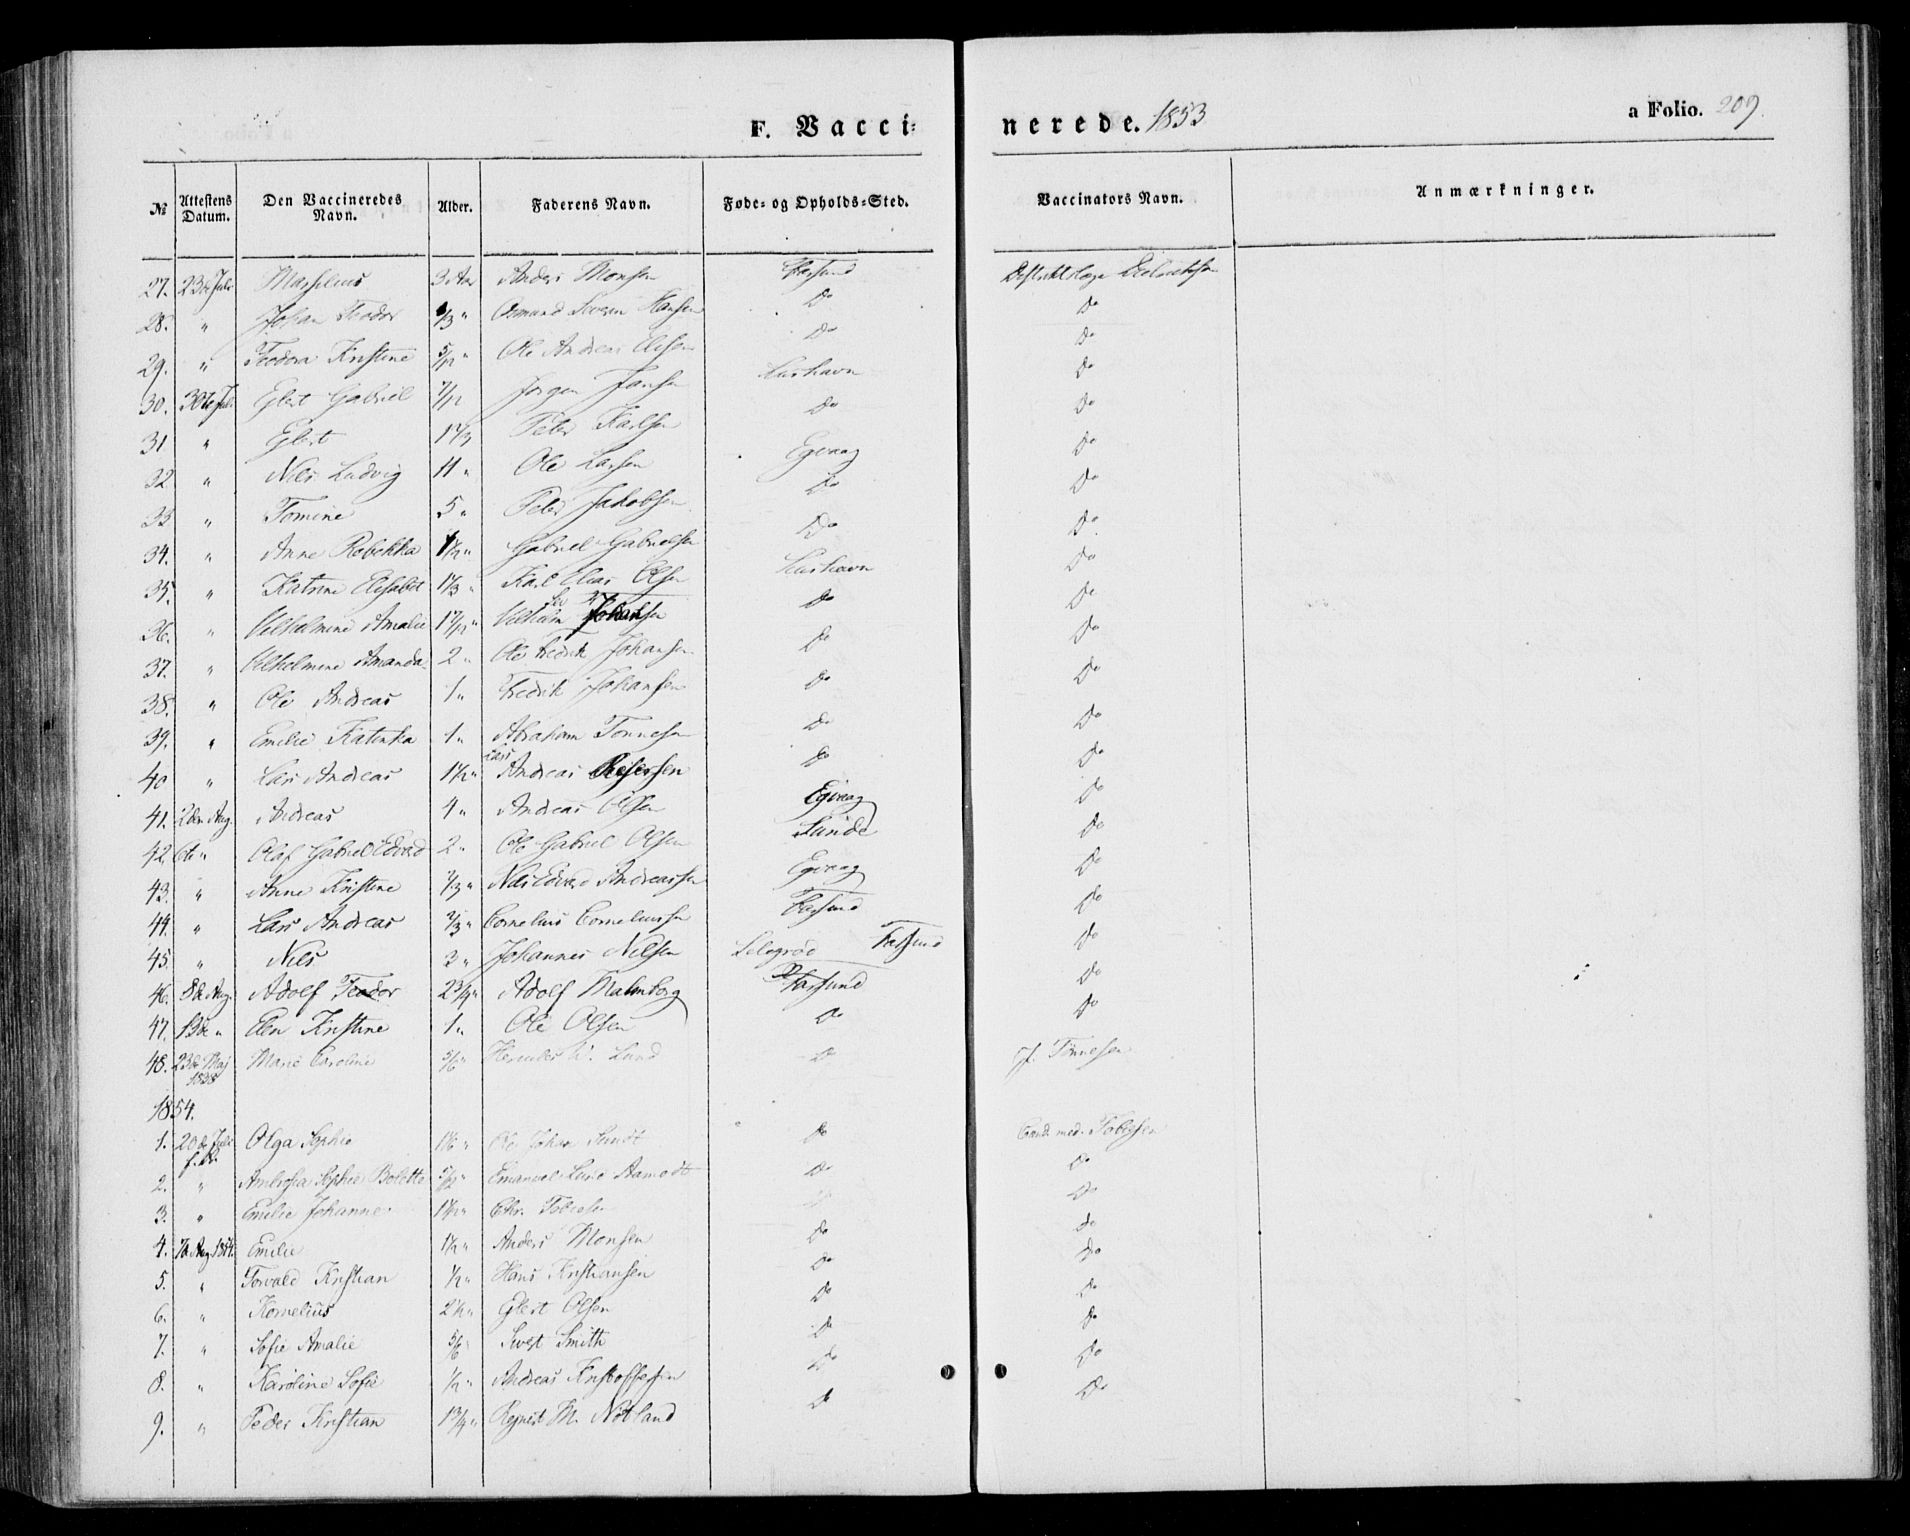 F. Vaccinerede. 1853 a Folio. 209.
№ Attestens Datum. Den Vaccineredes Navn. Alder. Faderens Navn. Føde- og Opholds-Sted. Vaccinators Navn. Anmærkninger.
27. 23de Juli 3 Aar Anders Monsen Farsund
28. " Johan Teodor 1/3 " Osmund Severin Hansen Do Do
29. " Teodora Kristine 5/12 " Ole Andreas Olsen Do Do
30. 30te Juli Glert Gabriel 7/12 Jørgen Jansen Lushavn Do
31 " Glert 1 1/3 Peder Karlsen Do Do
32 " Nils Ludvig 11 " Ole Larsen Egvaag Do
33 " Tomine 5 " Peder Jakobsen Do Do
34. " Anne Rebekka Gabriel Gabrielsen Do Do
35. " Katrine Elisabet 1 1/3 " Karl Elias Olsen Lushavn Do
36. " Vilhelmine Amalie 1 7/12 " Vilhelm Johansen Do Do
37. " Vilhelmine Amanda 2 " Ole Fredrik Johansen Do Do
38. " Ole Andreas 1 " Fredrik Johansen Do Do
39. " Emilie Katinka 1 " Abraham Tønnesen Do Do
40 " Lars Andreas 1 1/2 " Lars Andreas Do Do
41. 2den Aug. Andreas 4 " Andreas Olsen Egvaag Do
42. 6te " Olaf Gabriel Edvard 2 " Ole Gabriel Olsen Lunde Do
43. " Anne Kristine 2/3 " Nils Edvard Andreassen Egvaag Do
44. " Lars Andreas 2/3 " Cornelius Corneliussen Farsund Do
45. " Nils 3 " Johannes Nilsen Farsund Do
46. 8de Aug. Adolf Teodor 2 3/4 " Adolf Malmborg Farsund Do
47. 13de " Elen Kristine 1 " Ole Olsen Do Do
48. 23de Maj 1838 Marie Caroline 5/6 " Lund Do J. Tønnesen
1854.
1. 20de Juli Olga Sophie 1 1/6 " Ole Johan Sundt Do Cand. med. Tobiesen
2. " Ambrosia Sophie Bolette 5/12 " Emanuel Lund Aamodt Do Do
3. " Emilie Johanne 1 1/2 " Chr. Tobiesen Do Do
4. Aug 1854. Emilie 1 1/2 " Anders Monsen Do Do
5. " Torvald Kristian 1/2 " Hans Kristiansen Do Do
6. " Kornelius 2 1/2 " Glert Olsen Do Do
7. " Sofie Amalie 5/6 " Sivert Smith Do Do
8. " Karoline Sofie 1/2 " Andreas Kristoffersen Do Do
9. " Peder Kristian 1 3/4 " Rejnert M. Nøtland Do Do